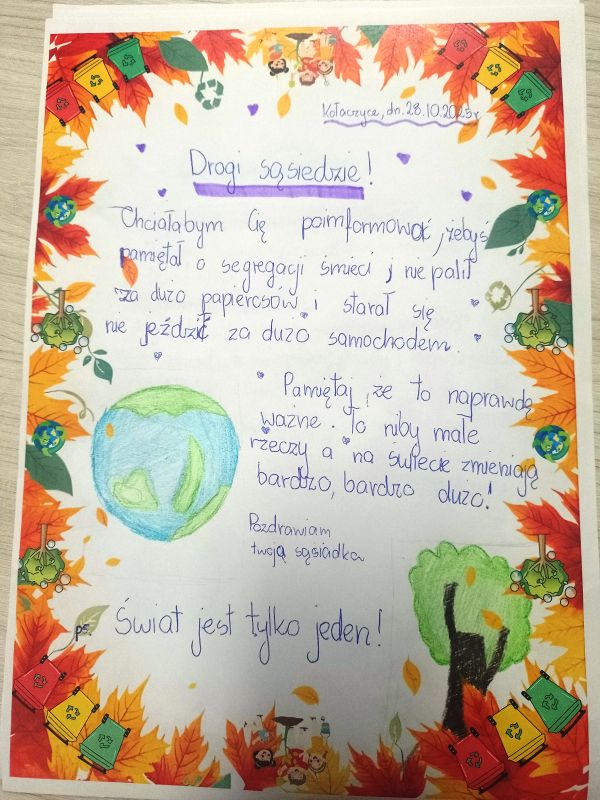 Kołaczyce, dn. 28.10.2025r
Drogi sąsiedzie!
Chciałabym Cię poimformować, żebyś
pamiętał o segregacji śmieci, nie palił
za dużo papierosów i starał się
nie jeździć za dużo samochodem.
Pamiętaj, że to naprawdę
ważne. To niby małe
rzeczy a na świecie zmieniają
bardzo, bardzo dużo!
Pozdrawiam
twoją sąsiadka
ps. Świat jest tylko jeden!